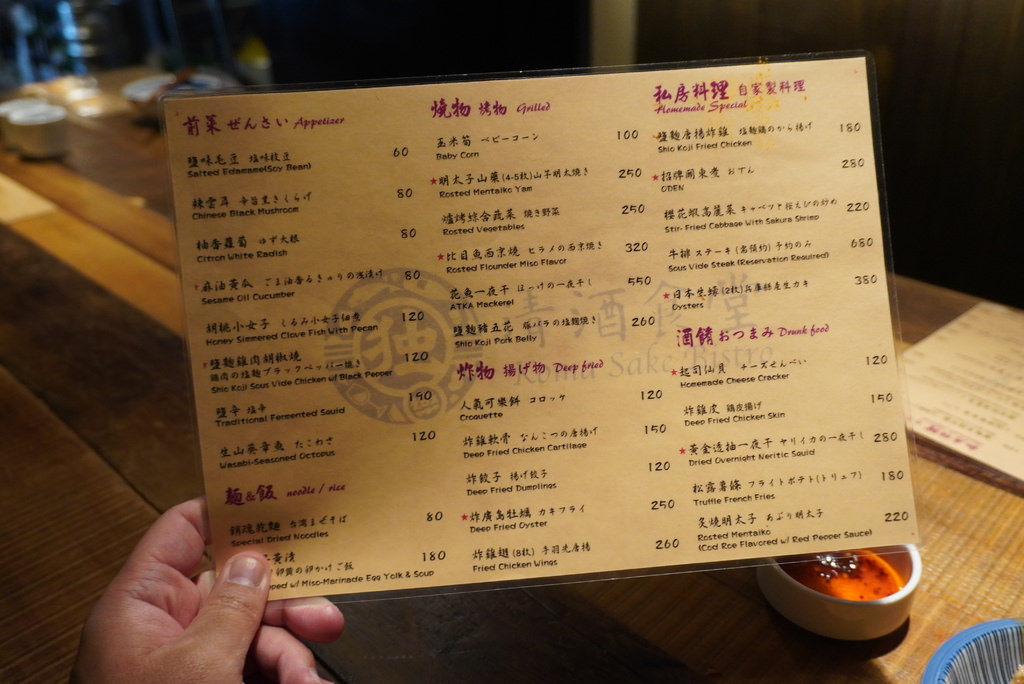 前菜 ぜんさい Appetizer
鹽味毛豆 塩味枝豆 60
Salted Edamame(Soy Bean)
辣雲耳 辛旨黒きくらげ 80
Chinese Black Mushroom
柚香蘿蔔 ゆず大根 80
Citron White Radish
麻油黃瓜 ごま油香るきゅりの浅漬け 80
Sesame Oil Cucumber
胡桃小女子 くるみ小女子佃煮 120
Honey Simmered Clove Fish With Pecan
鹽麴雞肉胡椒燒 120
鶏肉の塩麹ブラックペッパー焼き
Shio Koji Sous Vide Chicken w/ Black Pepper
鹽辛 塩辛 190
Traditional Fermented Squid
生山葵章魚 たこわさ 120
Wasabi-Seasoned Octopus
麵&飯 noodle / rice
銷魂乾麵 台湾まぜそば 80
Special Dried Noodles
黃漬 180
卵黄の卵かけご飯
ped w/ Miso-Marinade Egg Yolk & Soup
燒物 烤物 Grilled
玉米筍 ベビーコーン 100
Baby Corn
★明太子山藥(4-5粒)山芋明太焼き 250
Rosted Mentaiko Yam
爐烤綜合蔬菜 焼き野菜 250
Rosted Vegetables
★比目魚西京燒 ヒラメの西京焼き 320
Rosted Flounder Miso Flavor
花魚一夜干 ほっけの一夜干し 550
ATKA Mackerel
鹽麴豬五花 豚バラの塩麹焼き 260
Shio Koji Pork Belly
炸物 揚げ物 Deep fried
人氣可樂餅 コロッケ 120
Croquette
炸雞軟骨 なんこつの唐揚げ 150
Deep Fried Chicken Cartilage
炸餃子 揚げ餃子 120
Deep Fried Dumplings
★炸廣島牡蠣 カキフライ 250
Deep Fried Oyster
炸雞翅(8枚) 手羽先唐揚 260
Fried Chicken Wings
私房料理 自家製料理
Homemade Special
鹽麴唐揚炸雞 塩麹鶏のから揚げ 180
Shio Koji Fried Chicken
★招牌關東煮 おでん 280
ODEN
櫻花蝦高麗菜 キャベツと桜えびの炒め 220
Stir- Fried Cabbage With Sakura Shrimp
牛排 ステーキ(需預約)予約のみ 680
Sous Vide Steak (Reservation Required)
★日本生蠔(2枚)兵庫県産生カキ 380
Oysters
酒餚 おつまみ Drunk food
★起司仙貝 チーズせんべい 120
Homemade Cheese Cracker
炸雞皮 鶏皮揚げ 150
Deep Fried Chicken Skin
★黃金透抽一夜干 ヤリイカの一夜干し 280
Dried Overnight Neritic Squid
松露薯條 フライトポテト(トリュフ) 180
Truffle French Fries
炙燒明太子 あぶり明太子 220
Rosted Mentaiko
(Cod Roe Flavored w/ Red Pepper Sauce)
清酒食堂
Koma Sake Bistro